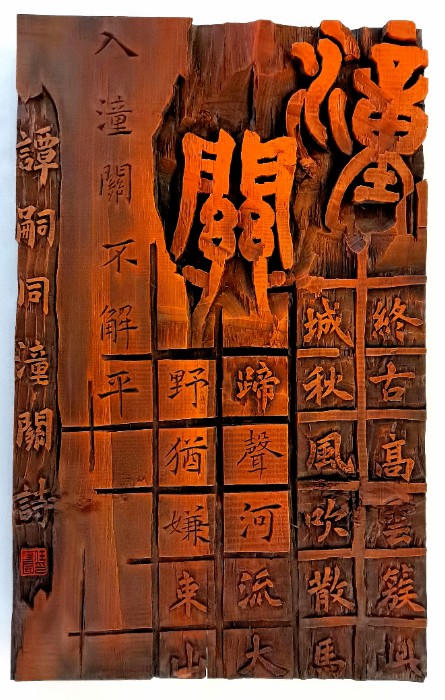 潼關
終古高雲簇此
城秋風吹散馬
蹄聲河流大
野猶嫌束山
入潼關不解平
譚嗣同潼關詩